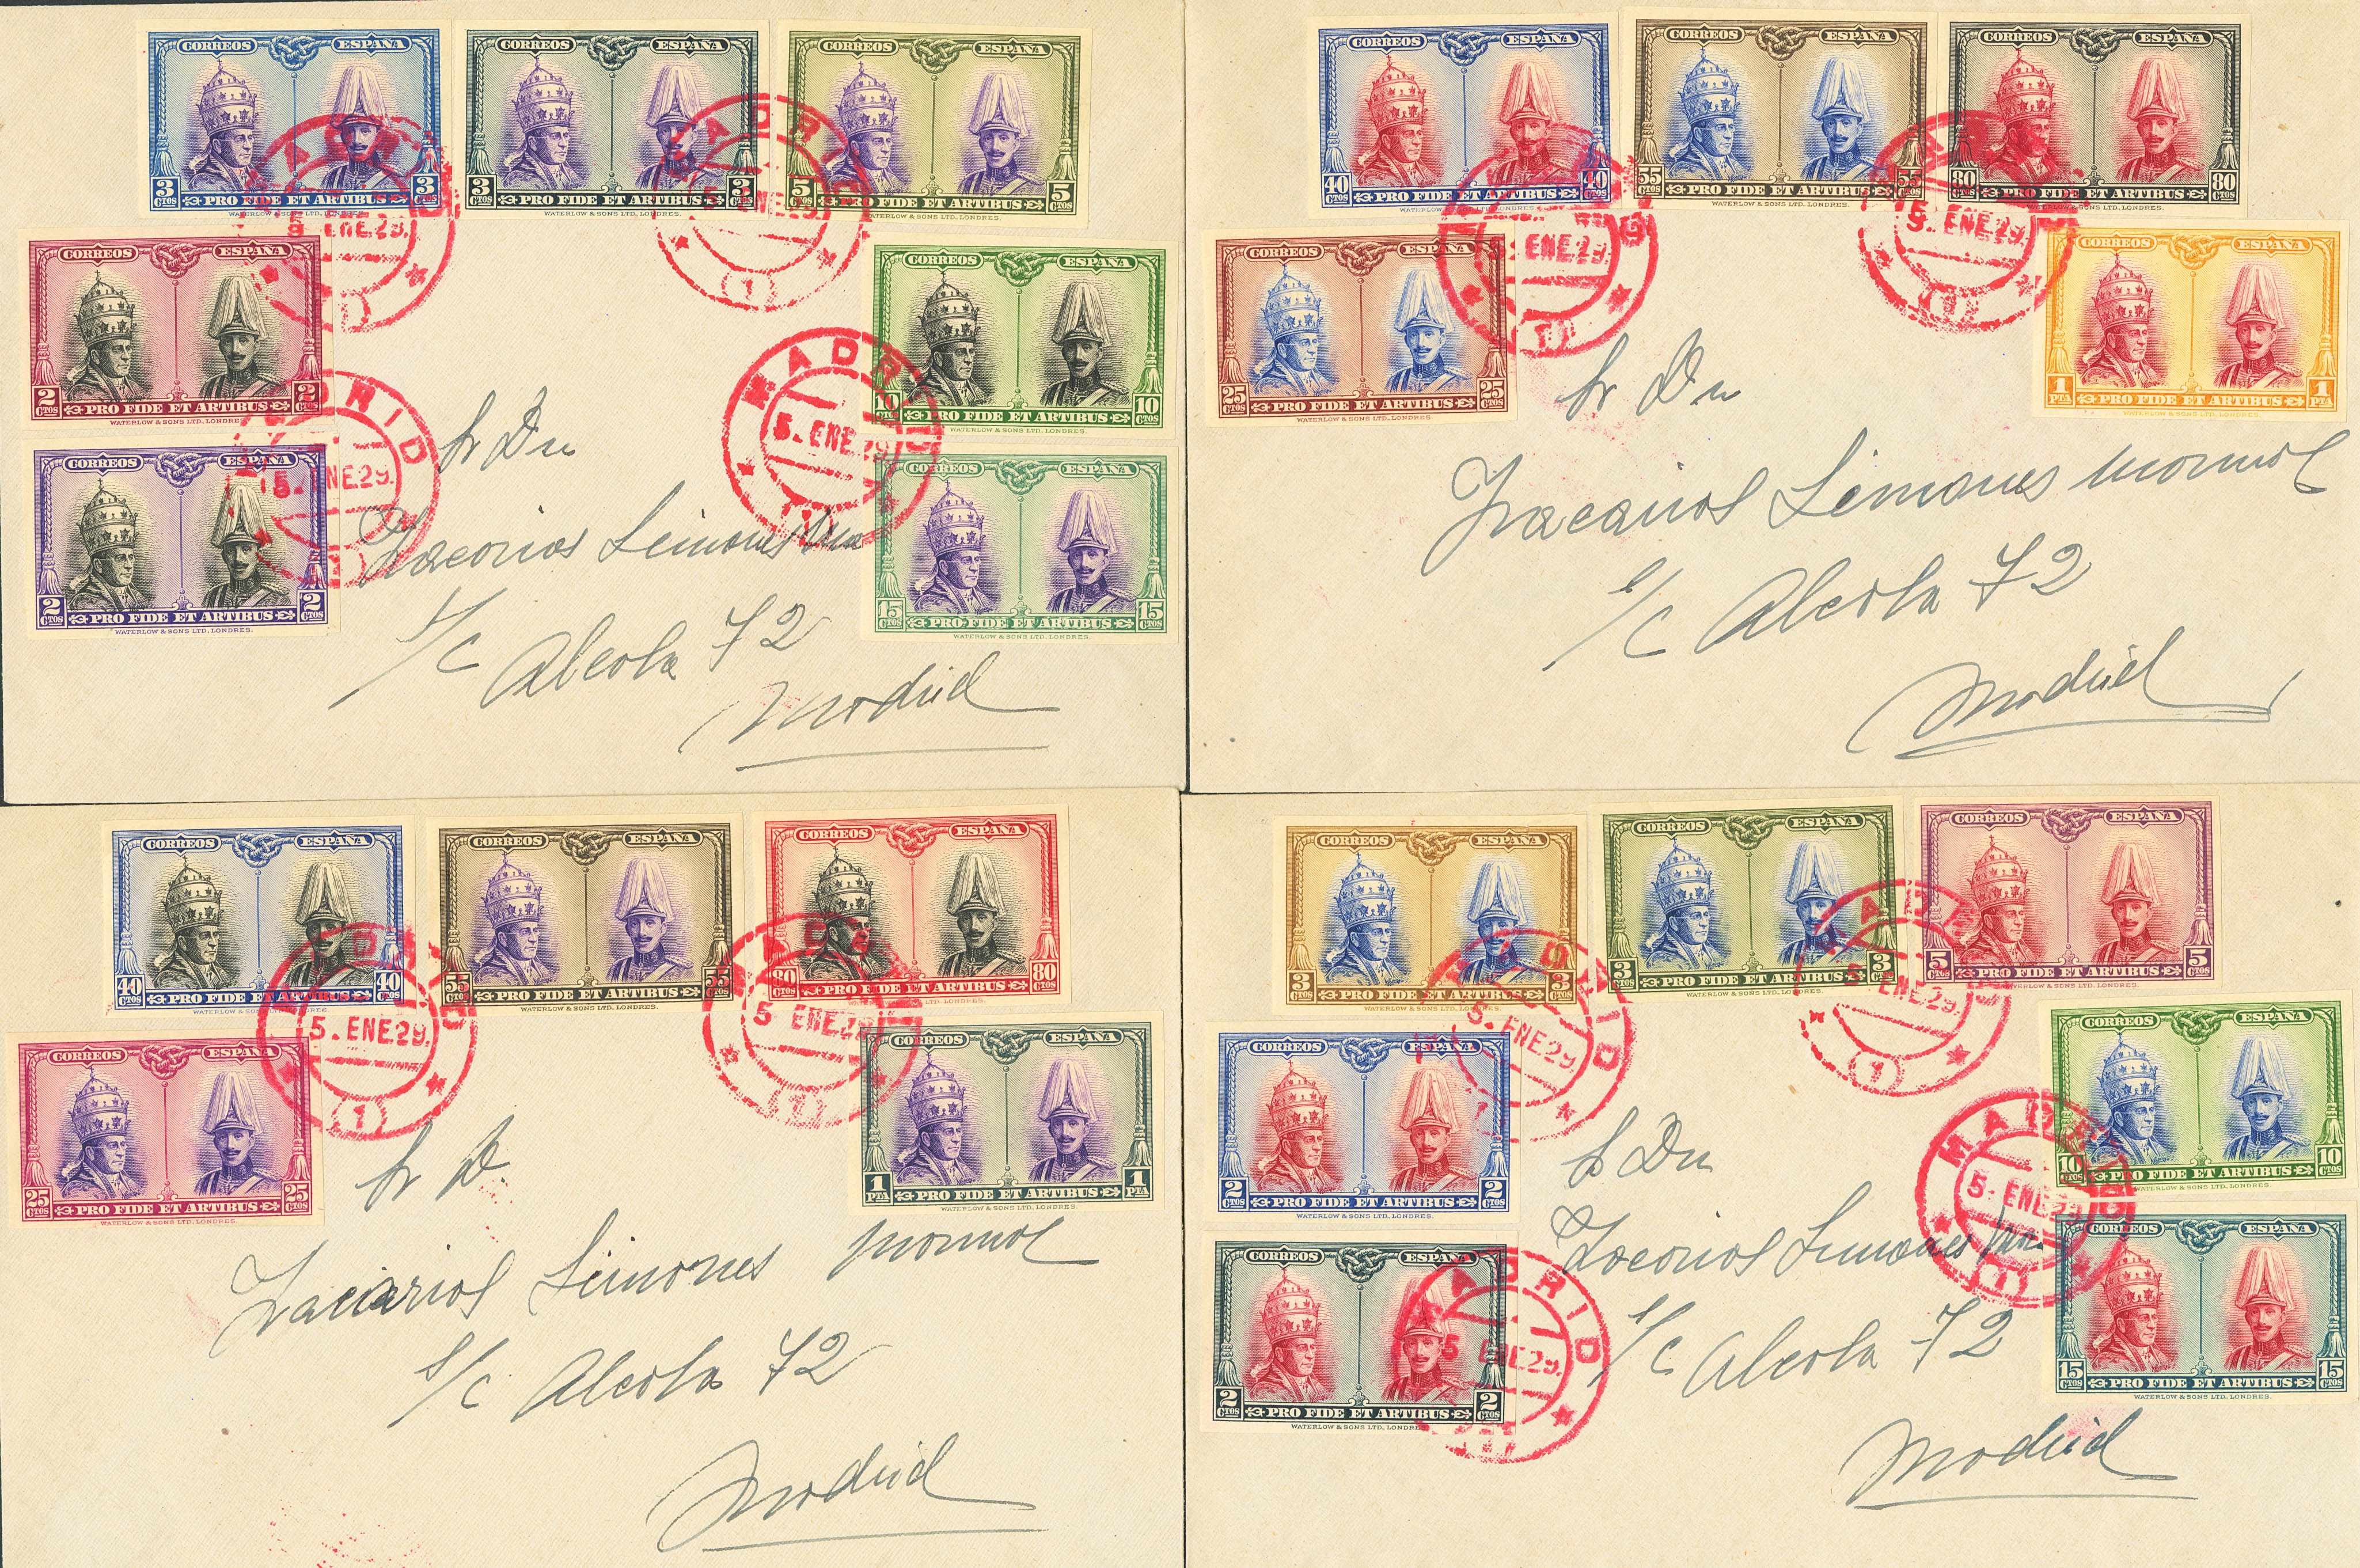 CORREOS ESPAÑA
3 CTOS PRO FIDE ET ARTIBUS 3 CTOS
WATERLOW & SONS LTD. LONDRES.
CORREOS ESPAÑA
3 CTOS PRO FIDE ET ARTIBUS 3 CTOS
WATERLOW & SONS LTD. LONDRES.
CORREOS ESPAÑA
5 CTOS PRO FIDE ET ARTIBUS 5 CTOS
WATERLOW & SONS LTD. LONDRES.
5. ENE.29.
(1)
MADRID
5. ENE.29.
(1)
CORREOS ESPAÑA
2 CTOS PRO FIDE ET ARTIBUS 2 CTOS
WATERLOW & SONS LTD. LONDRES.
CORREOS ESPAÑA
10 CTOS PRO FIDE ET ARTIBUS 10 CTOS
WATERLOW & SONS LTD. LONDRES.
MADRID
5. ENE.29.
MADRID
5. ENE.29.
(1)
CORREOS ESPAÑA
2 CTOS PRO FIDE ET ARTIBUS 2 CTOS
WATERLOW & SONS LTD. LONDRES.
CORREOS ESPAÑA
15 CTOS PRO FIDE ET ARTIBUS 15 CTOS
WATERLOW & SONS LTD. LONDRES.
Sr Dn
Zacarias Simones
s/c Alcala 72
Madrid
CORREOS ESPAÑA
40 CTOS PRO FIDE ET ARTIBUS 40 CTOS
WATERLOW & SONS LTD. LONDRES.
CORREOS ESPAÑA
55 CTOS PRO FIDE ET ARTIBUS 55 CTOS
WATERLOW & SONS LTD. LONDRES.
CORREOS ESPAÑA
80 CTOS PRO FIDE ET ARTIBUS 80 CTOS
WATERLOW & SONS LTD. LONDRES.
5. ENE.29.
(1)
5. ENE.29.
(1)
CORREOS ESPAÑA
25 CTOS PRO FIDE ET ARTIBUS 25 CTOS
WATERLOW & SONS LTD. LONDRES.
CORREOS ESPAÑA
1 PTA PRO FIDE ET ARTIBUS 1 PTA
WATERLOW & SONS LTD. LONDRES.
Sr Dn
Zacarias Simones
s/c Alcala 72
Madrid
CORREOS ESPAÑA
40 CTOS PRO FIDE ET ARTIBUS 40 CTOS
WATERLOW & SONS LTD. LONDRES.
CORREOS ESPAÑA
55 CTOS PRO FIDE ET ARTIBUS 55 CTOS
WATERLOW & SONS LTD. LONDRES.
CORREOS ESPAÑA
80 CTOS PRO FIDE ET ARTIBUS 80 CTOS
LTD. LONDRES.
MADRID
5. ENE.29.
(1)
MADRID
5. ENE.29.
(1)
CORREOS ESPAÑA
25 CTOS PRO FIDE ET ARTIBUS 25 CTOS
WATERLOW & SONS LTD. LONDRES.
CORREOS ESPAÑA
1 PTA PRO FIDE ET ARTIBUS 1 PTA
WATERLOW & SONS LTD. LONDRES.
Sr D.
Zacarias Simones
s/c Alcala 72
Madrid
CORREOS ESPAÑA
3 CTOS PRO FIDE ET ARTIBUS 3 CTOS
WATERLOW & SONS LTD. LONDRES.
CORREOS ESPAÑA
3 CTOS PRO FIDE ET ARTIBUS 3 CTOS
WATERLOW & SONS LTD. LONDRES.
CORREOS ESPAÑA
5 CTOS PRO FIDE ET ARTIBUS 5 CTOS
WATERLOW & SONS LTD. LONDRES.
MADRID
5. ENE.29.
MADRID
5 ENE.29.
(1)
CORREOS ESPAÑA
2 CTOS PRO FIDE ET ARTIBUS 2 CTOS
WATERLOW & SONS LTD. LONDRES.
CORREOS ESPAÑA
10 CTOS PRO FIDE ET ARTIBUS 10 CTOS
WATERLOW & SONS LTD. LONDRES.
MADRID
5. ENE.29
(1)
CORREOS ESPAÑA
2 CTOS PRO FIDE ET ARTIBUS 2 CTOS
WATERLOW & SONS LTD. LONDRES.
MADRID
5 ENE.29.
(1)
CORREOS ESPAÑA
15 CTOS PRO FIDE ET ARTIBUS 15 CTOS
WATERLOW & SONS LTD. LONDRES.
Sr Dn
Zacarias Simones
s/c Alcala 72
Madrid